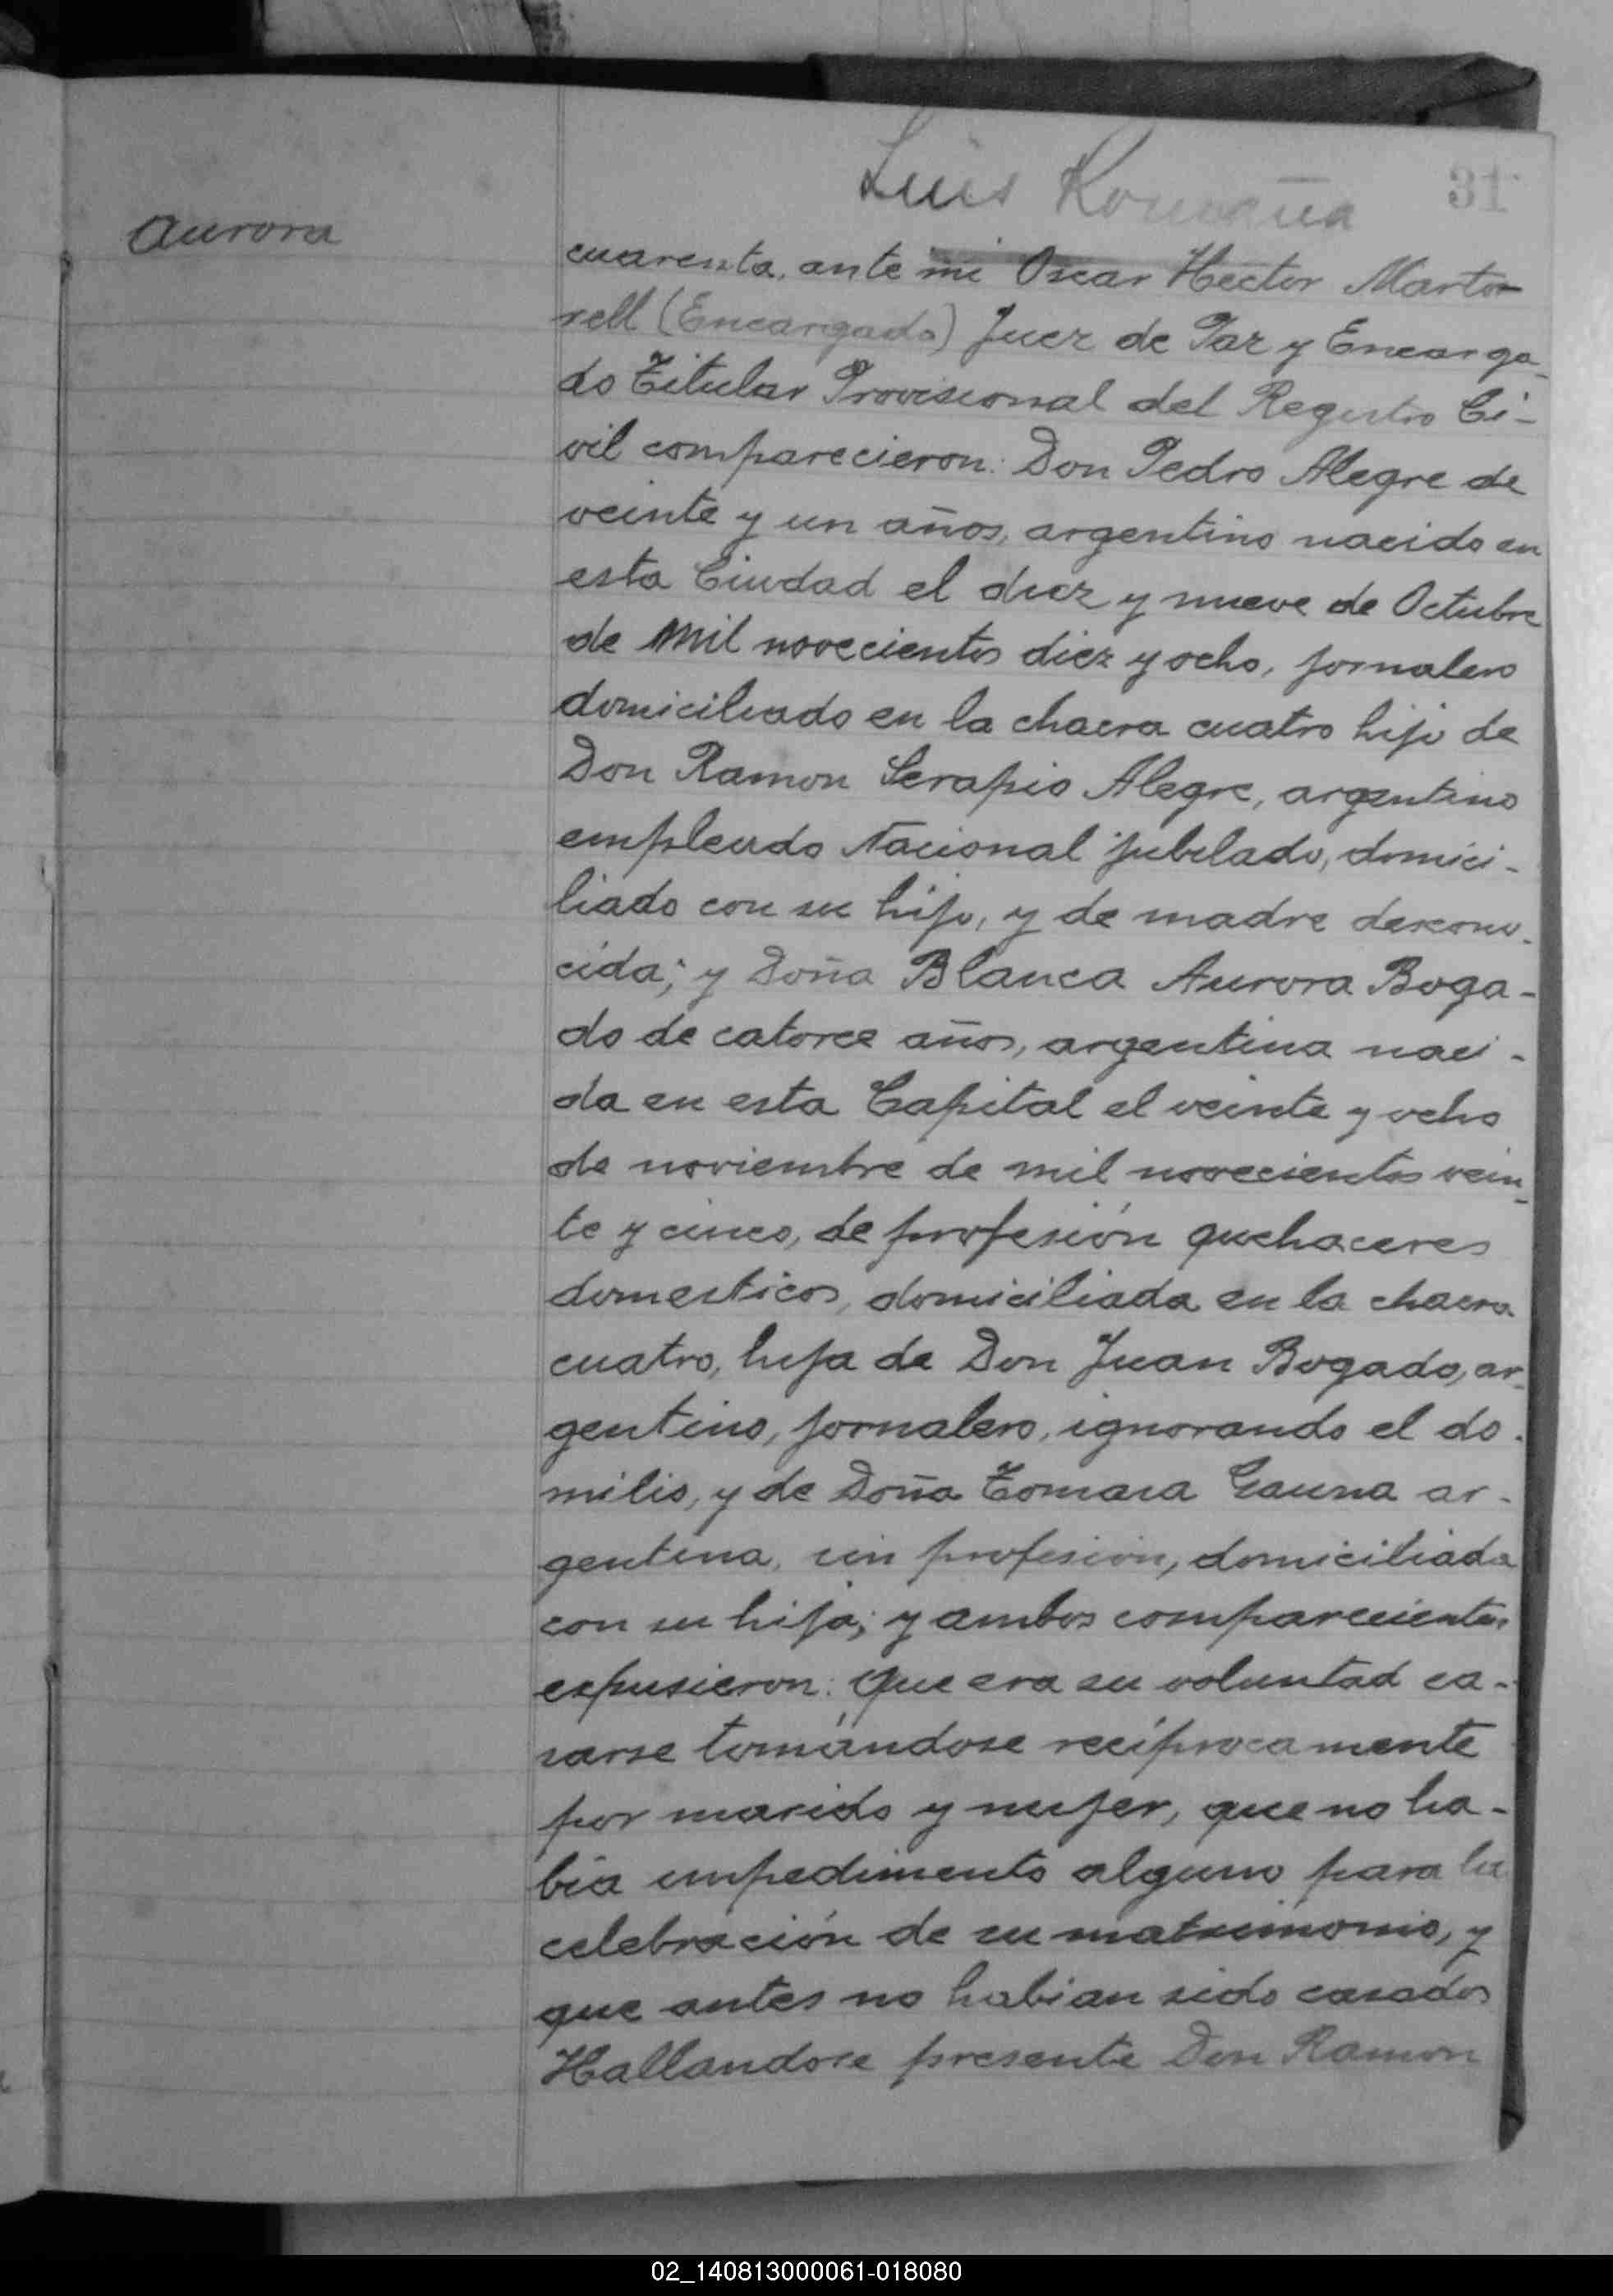 Luis Romaña
31
Aurora
cuarenta, ante mi Oscar Hector Marto-
rell (Encargado) Juez de Paz y Encarga-
do Titular Provisional del Registro Ci-
vil comparecieron: Don Pedro Alegre de
veinte y un años, argentino nacido en
esta Ciudad el diez y nueve de Octubre
de mil novecientos diez y ocho, jornalero
domiciliado en la chacra cuatro hijo de
Don Ramon Serapio Alegre, argentino
empleado Nacional jubilado, domici-
liado con su hijo, y de madre descono-
cida; y Doña Blanca Aurora Boga-
do de catorce años, argentina naci-
da en esta Capital el veinte y ocho
de noviembre de mil novecientos vein-
te y cinco, de profesión quehaceres
domesticos, domiciliada en la chacra
cuatro, hija de Don Juan Bogado, ar-
gentino, jornalero, ignorando el do-
milio, y de Doña Tomasa Gauna ar-
gentina, sin profesión, domiciliada
con su hija; y ambos comparecientes
expusieron: Que era su voluntad ca-
sarse tomándose recíprocamente
por marido y mujer, que no ha-
bía impedimento alguno para la
celebración de su matrimonio, y
que antes no habian sido casados
Hallandose presente Don Ramon
02_140813000061-018080